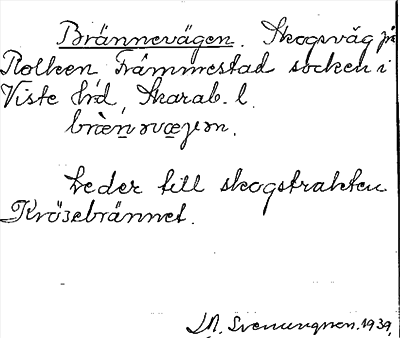 Brännevägen. Skogsväg på
Rolken, Främmestad socken i
Viste hd, Skarab. l.
brèn̲ಎvægen.
Leder till skogstrakten
Krösebrännet.
Svenungson. 1939.